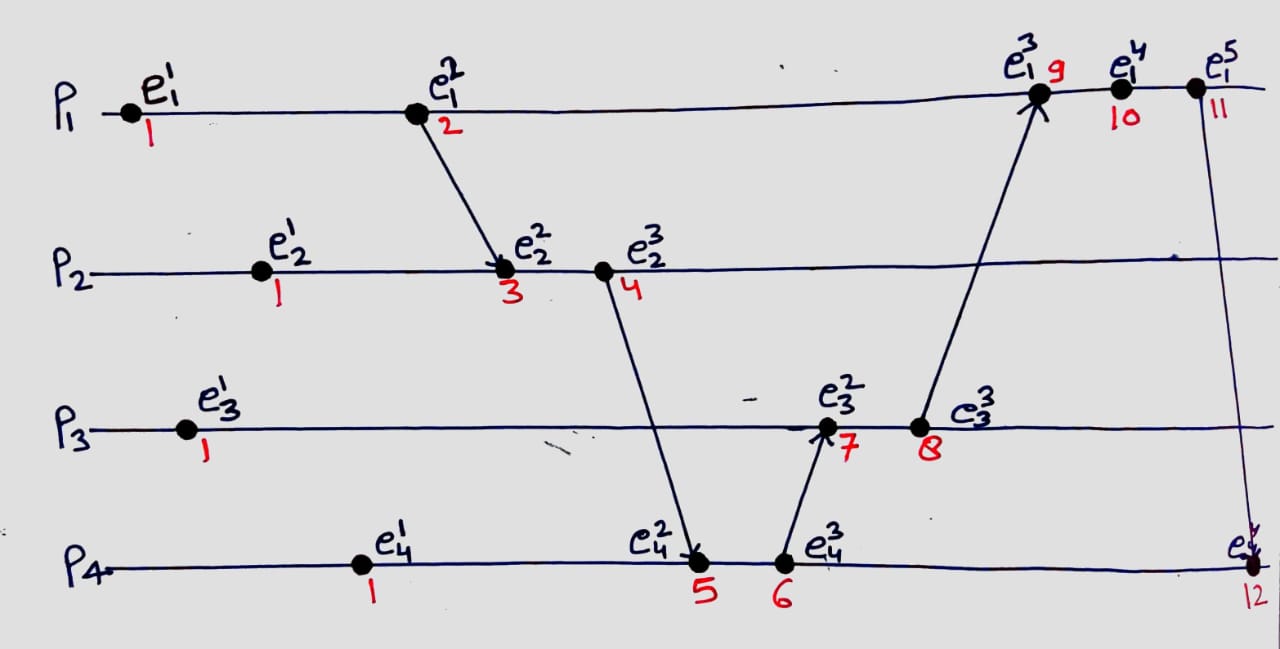 P₁ e₁¹ 1 e₁² 2 e₁³ 9 e₁⁴ 10 e₁⁵ 11
P₂ e₂¹ 1 e₂² 3 e₂³ 4
P₃ e₃¹ 1 e₃² 7 e₃³ 8
P₄ e₄¹ 1 e₄² 5 e₄³ 6 12